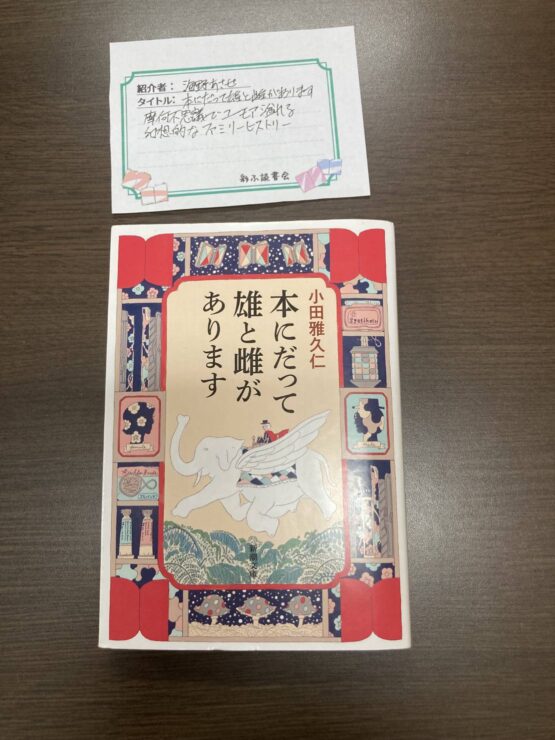 紹介者:
タイトル: 本にだって雄と雌があります
摩訶不思議でユーモア溢れる
幻想的なファミリーヒストリー
彩ふ読書会
小田雅久仁
本にだって
雄と雌が
あります
新潮文庫